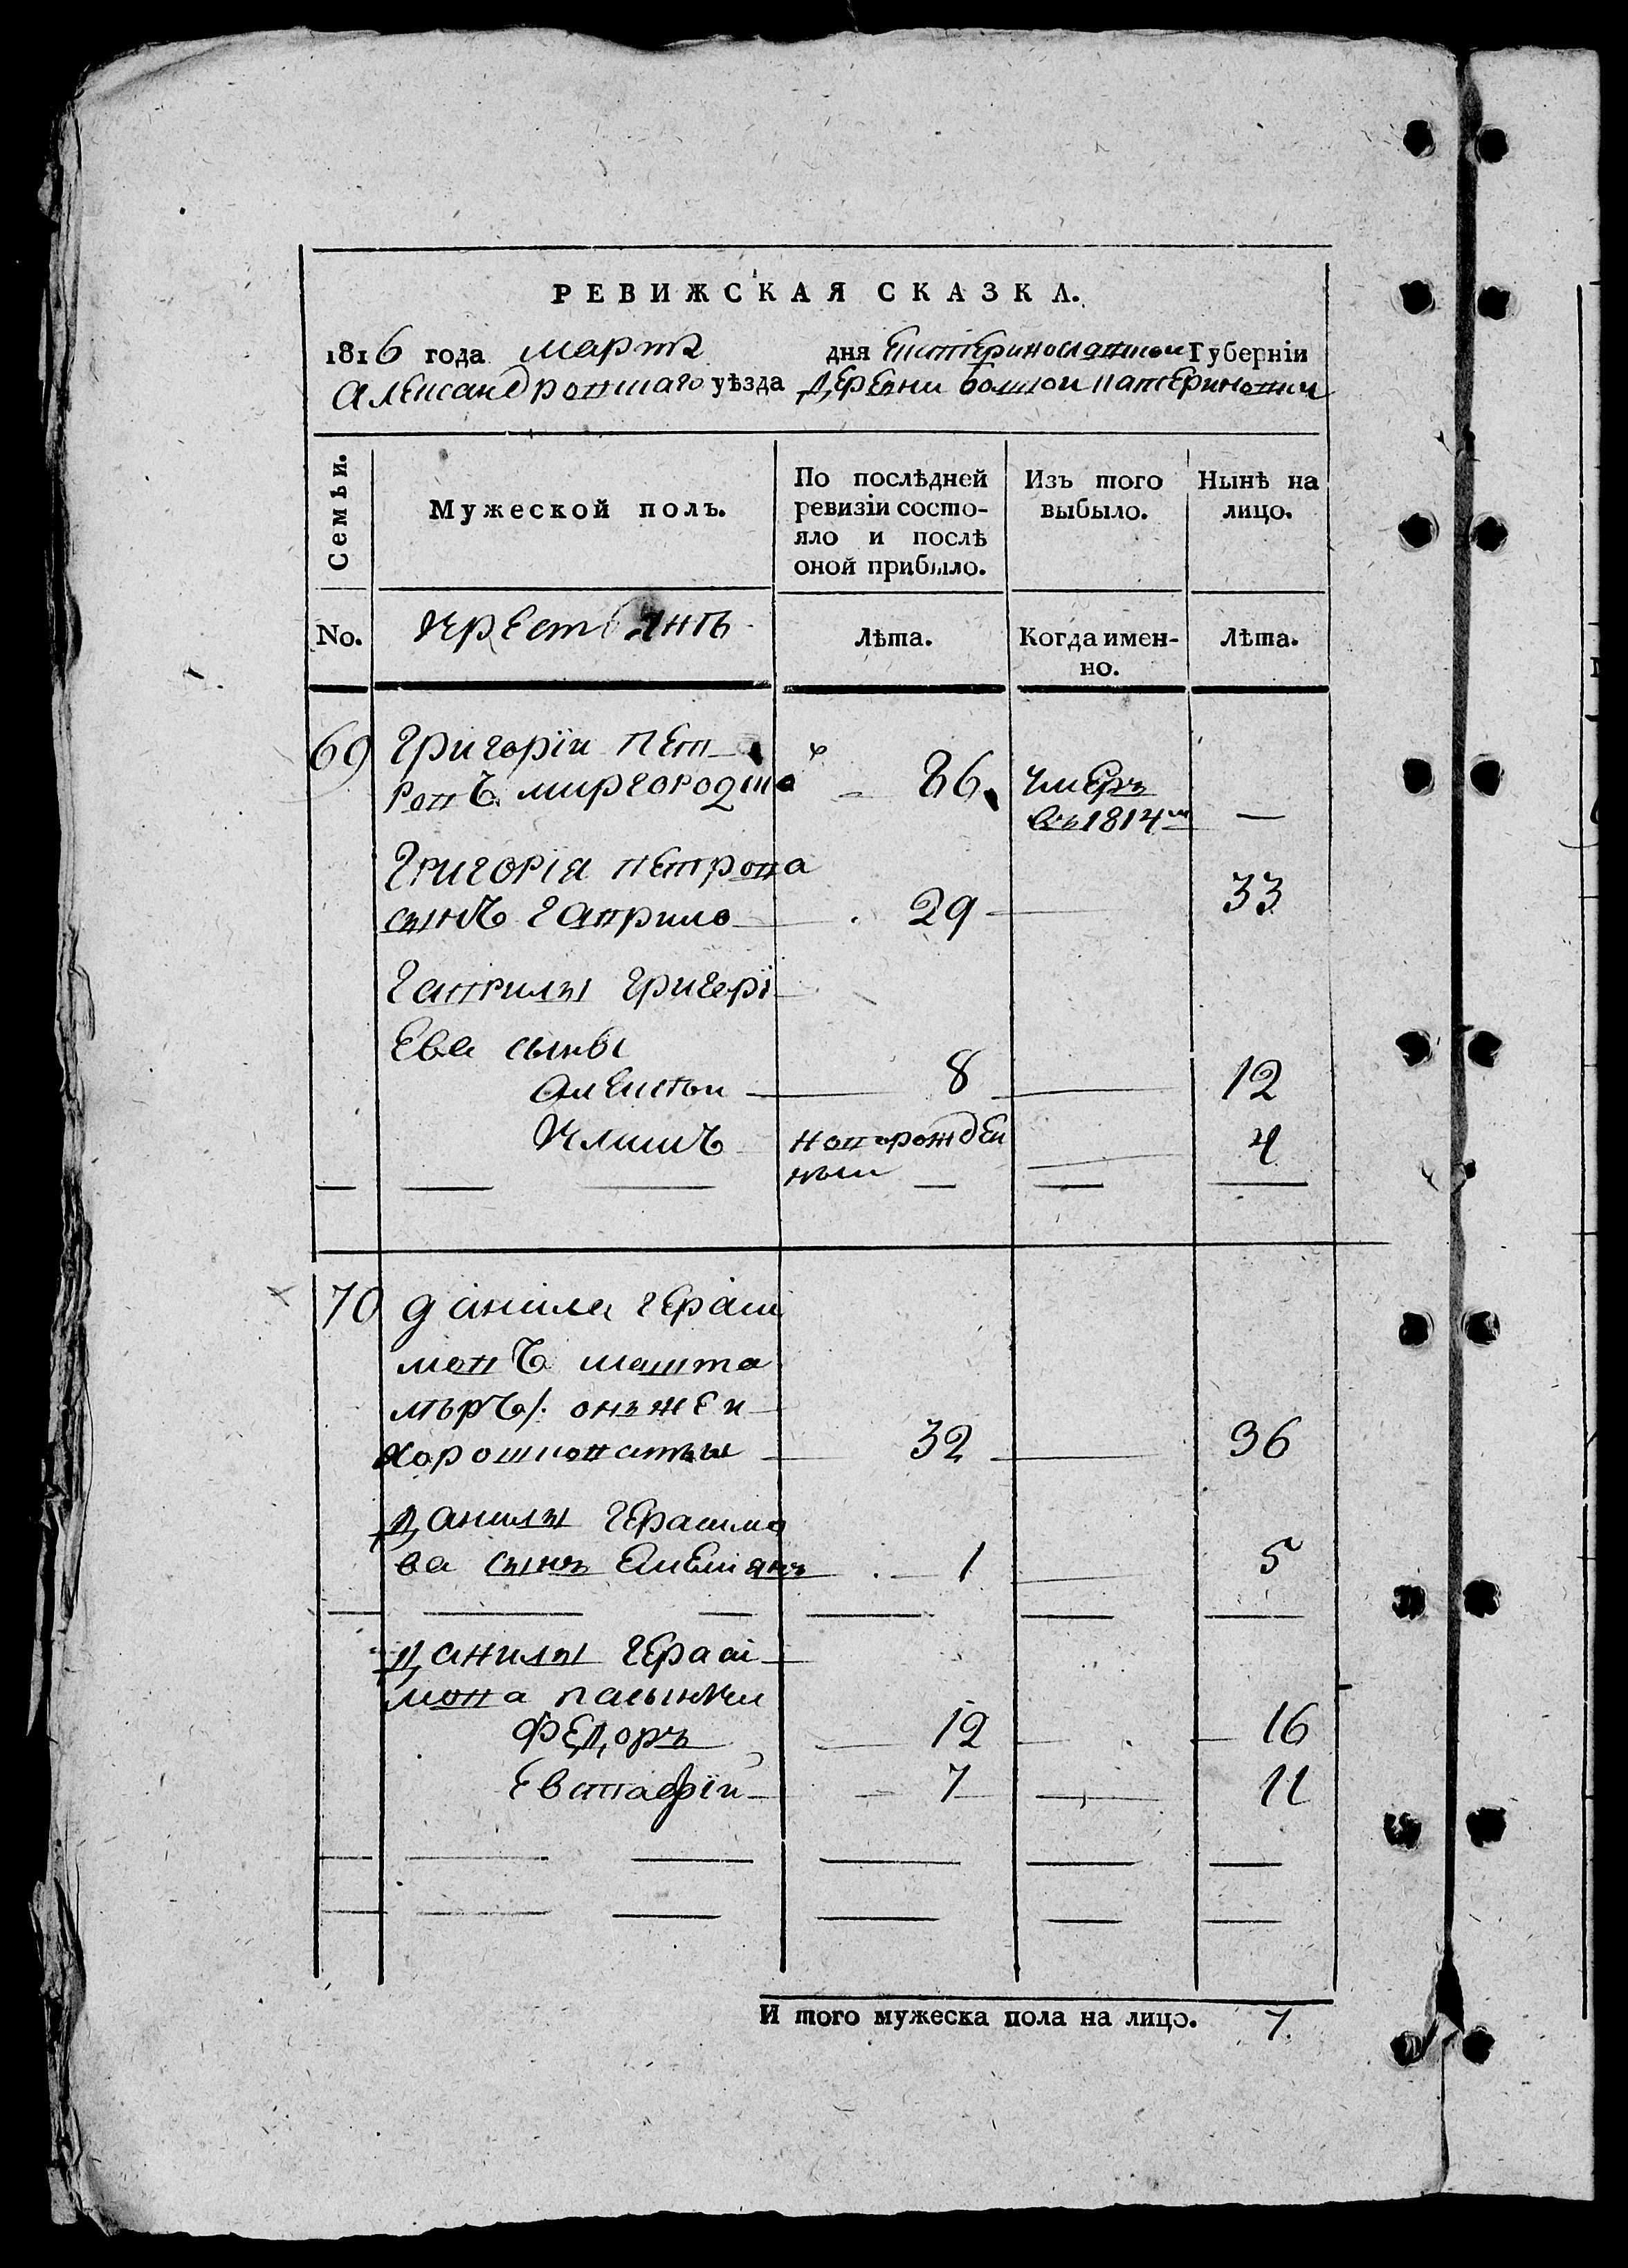 РЕВИЖСКАЯ СКАЗКА.
1816 года Марта дня Екатеринославской Губерніи
Александровскаго уѣзда Деревни Большой Катериновки
Семьи. Мужеской полъ. По послѣдней ревизіи состояло и послѣ оной прибыло. Изъ того выбыло. Нынѣ на лицо.
No. крестьянъ Лѣта. Когда именно. Лѣта.
69 Григорїи Пет
ровъ миргородска 86. умеръ
въ 1814м —
Григорїя Петрова
сынъ Гаврило 29 33
Гаврилы Григорї
Ева сыны
Алексѣи 8 12
Климъ новорожден 4
ныи
70 Данила Герасі
мовъ
онъже и
32 36
Данилы Герасимо
ва сынъ Емелиянъ 1 5
Данилы Герасі
мова пасынки
Федоръ 12 16
Евстафїй 7 11
И того мужеска пола на лицо. 7